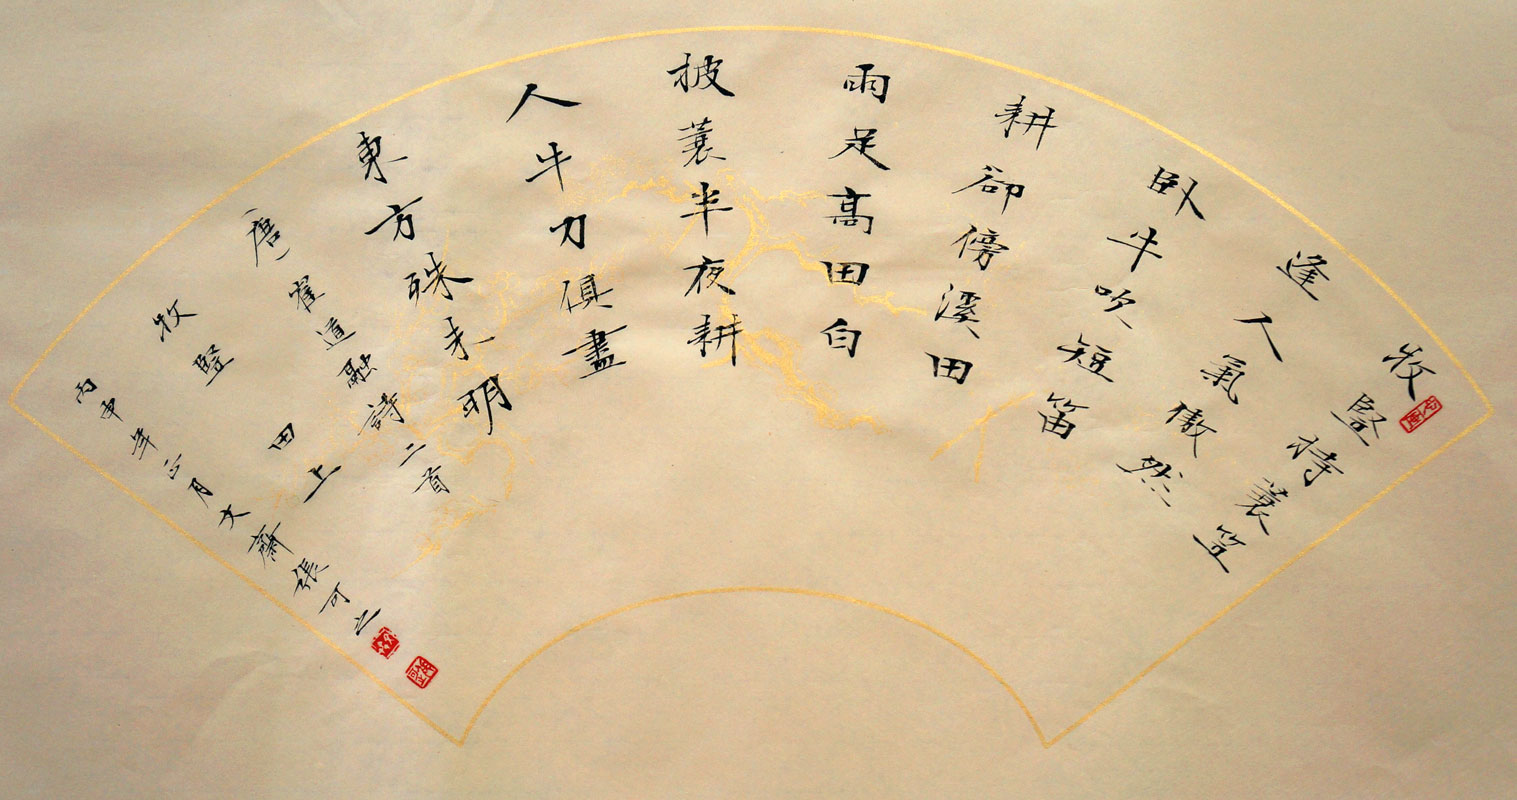 牧豎持蓑笠
逢人氣傲然
臥牛吹短笛
耕卻傍溪田
雨足高田白
披蓑半夜耕
人牛力俱盡
東方殊未明
(唐)崔道融詩二首
牧豎 田上
丙申年正月文齋張可